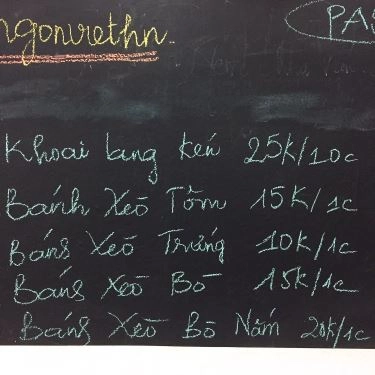 ngonvrethn
PAS
Khoai lang kén 25K/10c
Bánh Xèo Tôm 15K/1c
Bánh Xèo Trứng 10K/1c
Bánh Xèo Bò 15K/1c
Bánh Xèo Bò Nấm 20k/1c